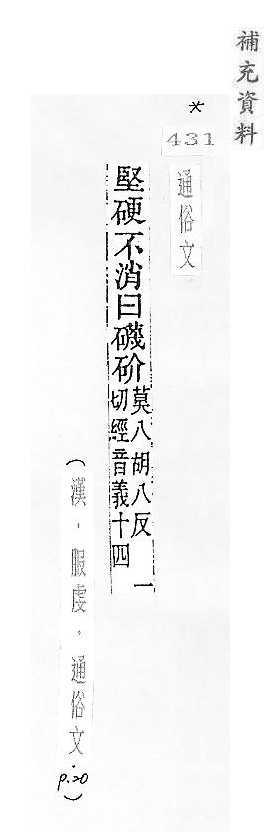 補充資料
*
431
通俗文
堅硬不消曰礣砎莫八胡八反 一
切經音義十四
(漢，服虔，通俗文，p.20)